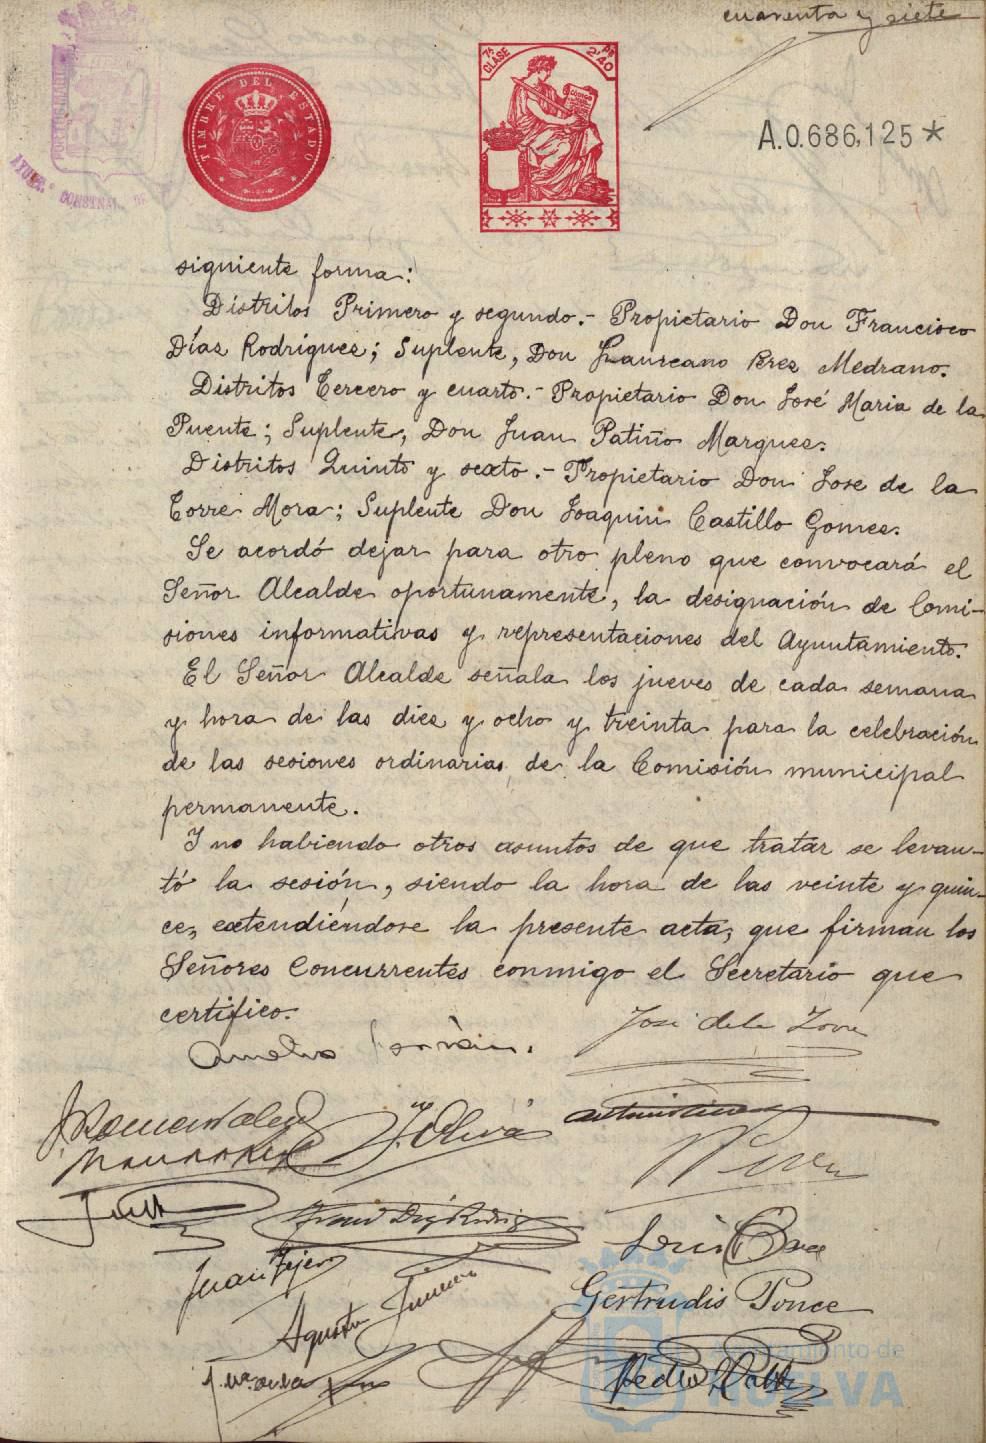 cuarenta y siete
TIMBRE DEL ESTADO
7ª CLASE
PS 2'40
A.0.686,125*
siguiente forma:
Distritos Primero y segundo.- Propietario Don Francisco
Díaz Rodriguez; Suplente, Don Laureano Perez Medrano.
Distritos Tercero y cuarto.- Propietario Don José Maria de la
Puente; Suplente, Don Juan Patiño Marquez.
Distritos Quinto y sexto.- Propietario Don Jose de la
Torre Mora; Suplente Don Joaquin Castillo Gomez.
Se acordó dejar para otro pleno que convocará el
Señor Alcalde oportunamente, la designación de Comi-
siones informativas y representaciones del Ayuntamiento.
El Señor Alcalde señala los jueves de cada semana
y hora de las diez y ocho y treinta para la celebración
de las sesiones ordinarias de la Comisión municipal
permanente.
Y no habiendo otros asuntos de que tratar se levan-
tó la sesión, siendo la hora de las veinte y quin-
ce, extendiéndose la presente acta, que firman los
Señores Concurrentes conmigo el Secretario que
certifico.
José de la Torre
J. Oliva
Juan Tejero
Agustin Jimenez
Luis
Gertrudis Ponce
Pedro
Ayuntamiento de
HUELVA